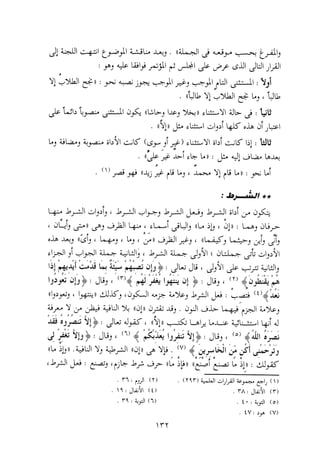 والمفرغ بحسب موقعه فى الجملة» . وبعد مناقشة الموضوع انتهت اللجنة إلى
القرار التالى الذى عرض على المجلس ثم المؤتمر فوافقا عليه وهو :
أولاً : المستثنى التام الموجب وغير الموجب يجوز نصبه نحو : «نجح الطلابُ إلا
طالباً ، وما نجح الطلابُ إلا طالباً» .
ثانياً : فى حالة الاستثناء «بخلا وعدا وحاشا» يكون المستثنى منصوباً دائماً على
اعتبار أن هذه كلها أدوات استثناء مثل «إلاَّ» .
ثالثاً : إذا كانت أداة الاستثناء (غير أو سوى) كانت الأداة منصوبة ومضافة وما
بعدها مضاف إليه مثل : «ما جاء أحد غيرَ علىٍّ» .
أما نحو : «ما قام إلا محمدٌ ، وما قام غيرُ زيد» فهو قصر (١)
** الشـرط :
يتكون من أداة الشرط وفعل الشرط وجواب الشرط ، وأدوات الشرط منها
حرفان وهما : «إنْ ، وإذ ما» والباقى أسماء ، منها الظرف وهى «متى وأيـَّان ،
وأنَّى وأين وحيثما وكيفما» ، وغير الظرف «مَنْ ، وما ، ومهما ، وأىّ» وبعد هذه
الأدوات تأتى جملتان ، الأولى جملة الشرط ، والثانية جملة الجواب أو الجزاء
والثانية تترتب على الأولى ، قال تعالى : ﴿ وَإِن تُصِبْهُمْ سَيِّئَةٌ بِمَا قَدَّمَتْ أَيْدِيهِمْ إِذَا
هُمْ يَقْنَطُونَ ﴾ (٢) ، وقال : ﴿ إِن يَنتَهُوا يُغْفَرْ لَهُم ﴾ (٣) ، ﴿ وَإِن تَعُودُوا
نَعُدْ ﴾ (٤) : فعل الشرط وعلامة جزمه السكون، وكذلك «ينتهوا ، وتعودوا»
وعلامة الجزم فيهما حذف النون . وقد تقترن «إن» بلا النافية فيظن من لا معرفة
له أنها استثنائية عندما يراها تكتب «إلاَّ» ، كقوله تعالى : ﴿ إِلاَّ تَنصُرُوهُ فَقَدْ
نَصَرَهُ اللَّهُ ﴾ (٥) ، وقال : ﴿ إِلاَّ تَنفِرُوا يُعَذِّبْكُمْ ﴾ (٦) ، وقال : ﴿ وَإِلاَّ تَغْفِرْ لِي
وَتَرْحَمْنِي أَكُن مِّنَ الْخَاسِرِينَ ﴾ (٧) . فإلا هى «إن» الشرطية ولا النافية. «وإذ ما»
كقولك : «إذ ما تصنعْ أصنعْ» «فإذ ما» حرف شرط جازم، وتصنع : فعل الشرط،
(١) راجع مجموعة القرارات العلمية (٢٩٣) (٢) الروم : ٣٦ .
(٣) الأنفال : ٣٨ . (٤) الأنفال : ١٩ .
(٥) التوبة : ٤٠ . (٦) التوبة : ٣٩ .
(٧) هود : ٤٧ .
١٣٢